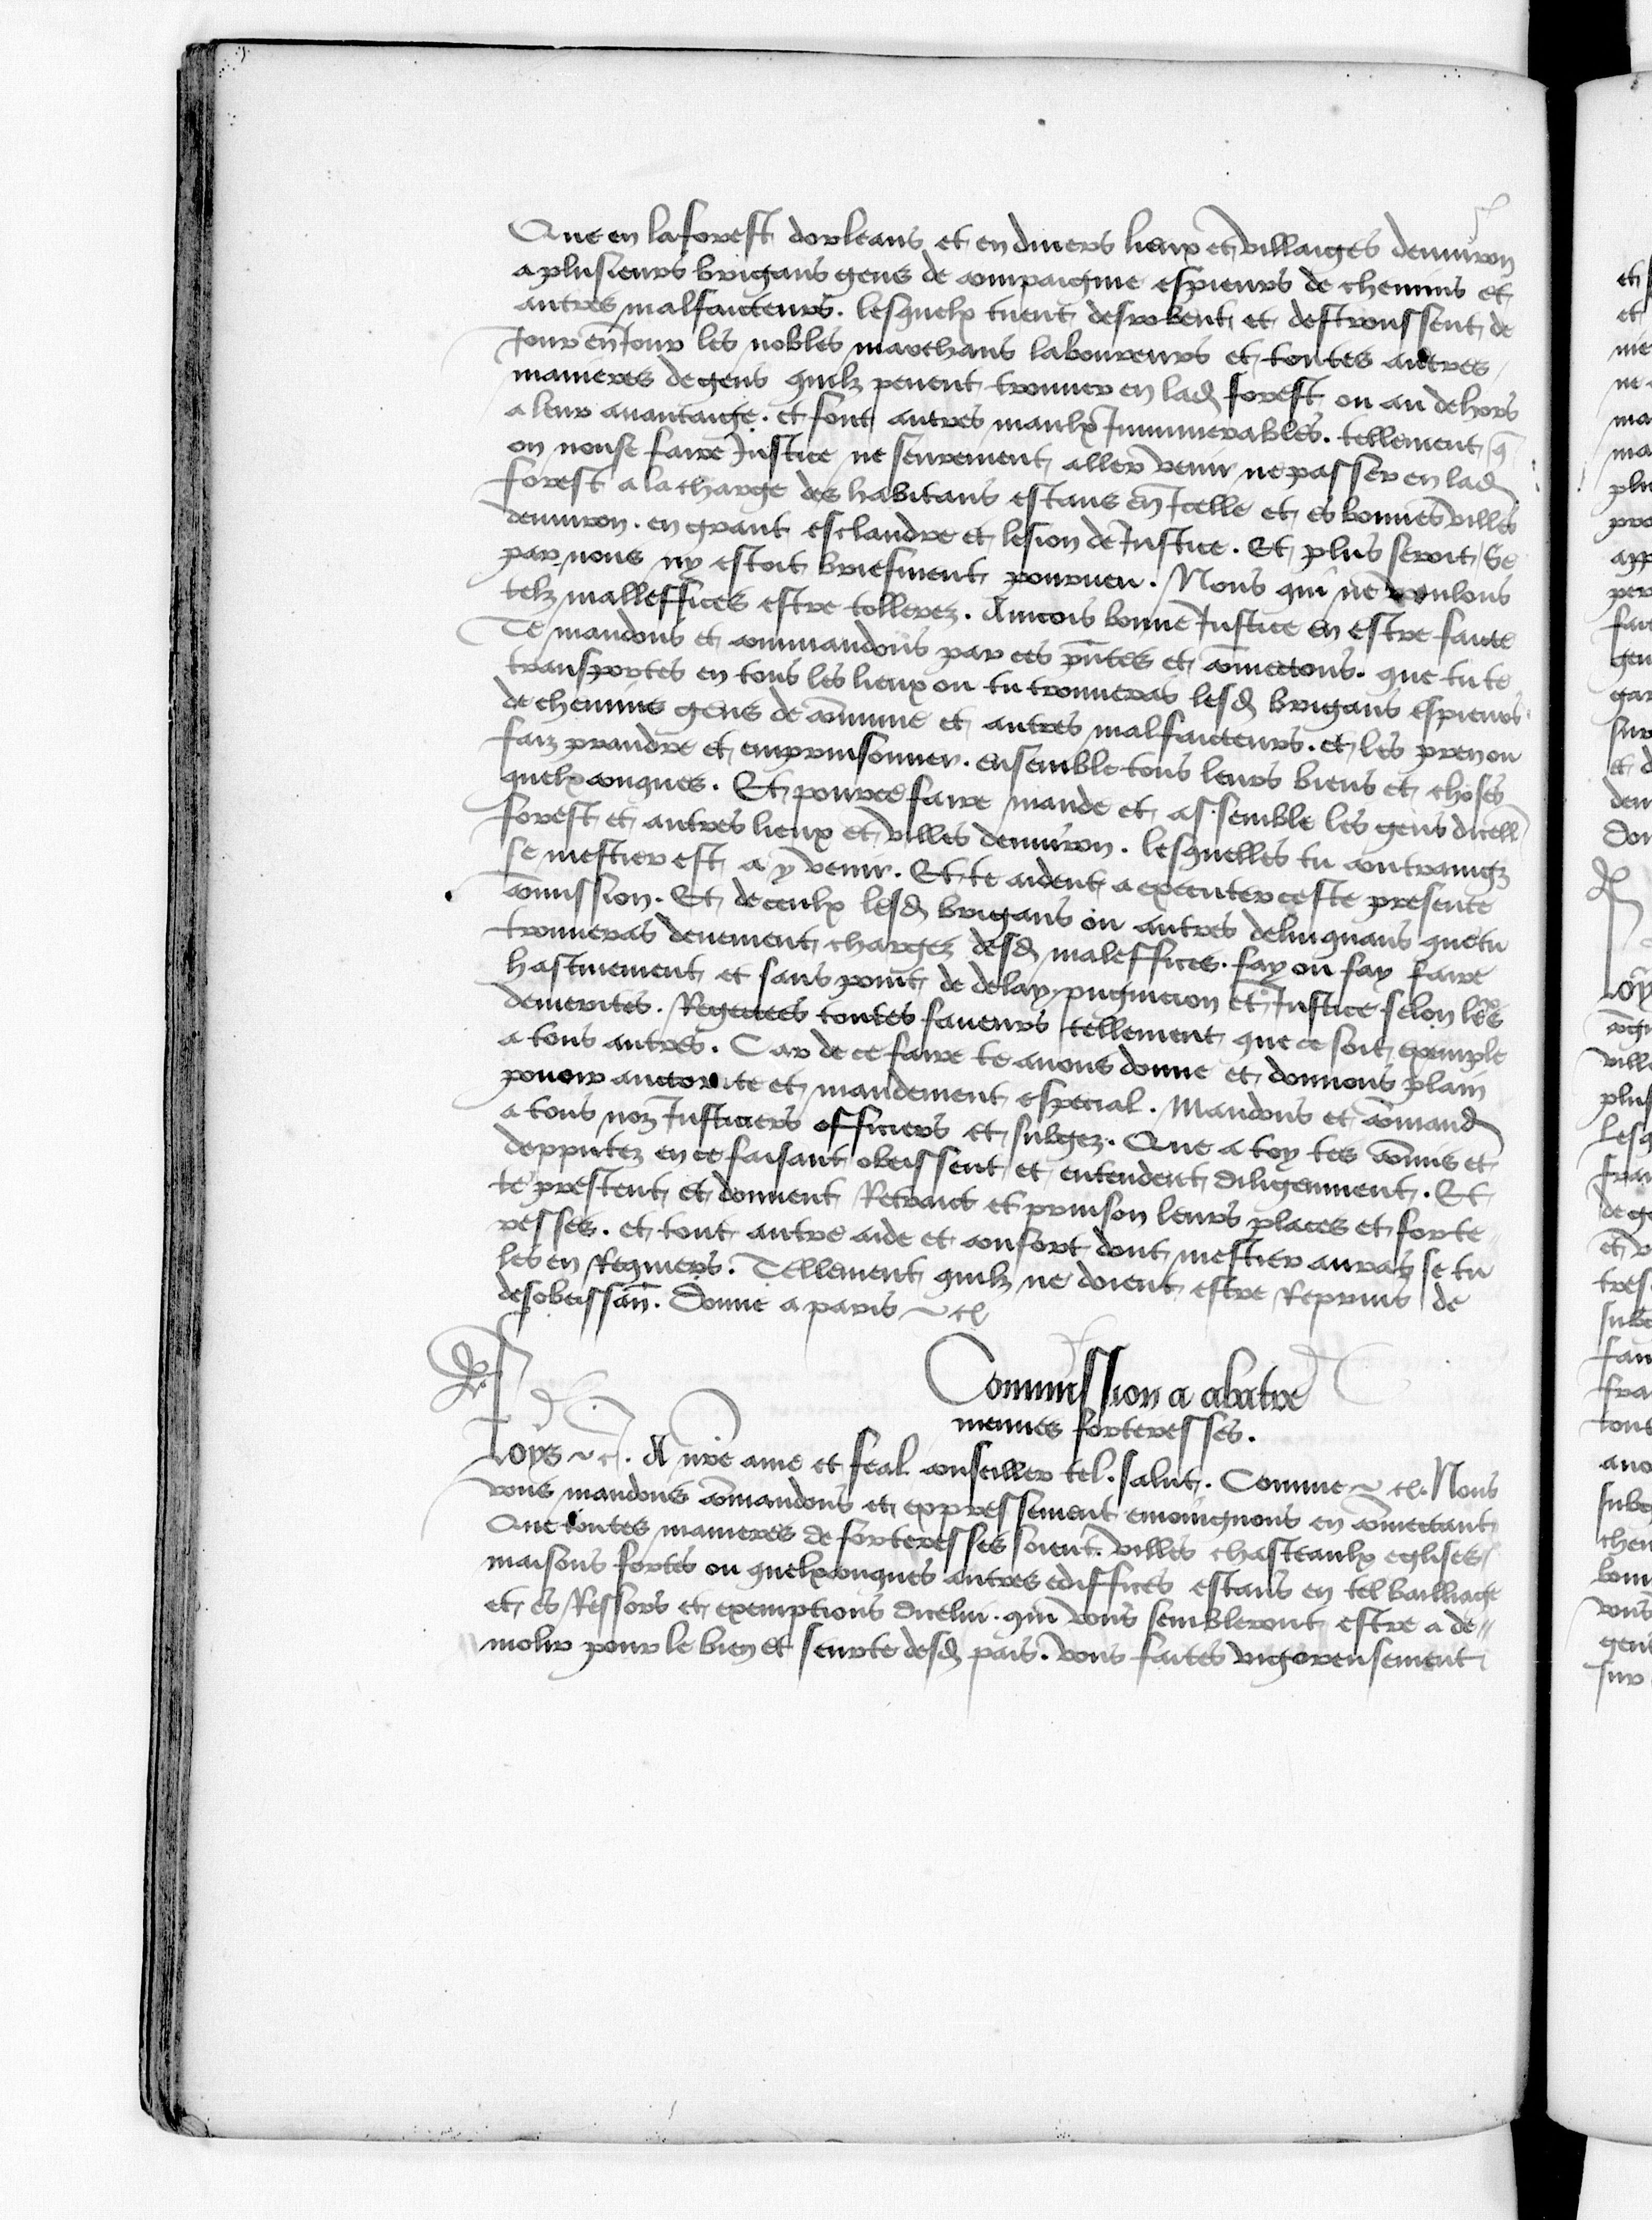 Que en la forest dorleans et en diuers lieux et villaiges denuiron
a plusieurs brigans gens de compaignie espieurs de chemins et
autres malfaicteurs. lesquelx tuent desrobent et destroussent de
Jour en Jour les nobles marchans laboureurs et toutes autres
manieres de gens quilz peuent trouuer en lad forest ou au dehors
a leur auantaige. et font autres maulx Innumerables. tellement q̄
on nouse faire Justice ne seurement aller venir ne passer en lad
forest a la charge des habitans estans en Icelle et es bonnes villes
denuiron. en grant esclandre et lesion de Justice. Et plus seroit se
par nous ny estoit briefment pourueu. Nous qui ne voulons
telz malleffices estre tollerez. Aincois bonne Justice en estre faicte
Te mandons et commandons par ces pn̄tes et com̄ectons. que tu te
transportes en tous les lieux ou tu trouueras lesd brigans espieurs
de chemins gens de com̄une et autres malfaicteurs. et les pren ou
faiz prandre et emprisonner. ensemble tous leurs biens et choses
quelxconques. Et pour ce faire mande et assemble les gens dicell
forest et autres lieux et villes denuiron. lesquelles tu contraingz
se mestier est a y venir. Et te aident a executer ceste presente
com̄ission. Et de ceulx lesd brigans ou autres delinquans que tu
trouueras deuement chargez desd maleffices. fay ou fay faire
hastiuement et sans point de delay pugnicion et Justice selon les
demerites. Regectees toutes faueurs tellement que ce soit exemple
a tous autres. Car de ce faire te auons donne et donnons plain
pouoir auctorite et mandement especial. Mandons et com̄and
a tous noz Justiciers officiers et subgez. Que a toy tes com̄is et
depputez en ce faisant obeissent et entendent diligemment. Et
te prestent et donnent Retraict et prinson leurs places et forte
resses. et tout autre aide et confort dont mestier auras se tu
les en Requiers. Tellement quilz ne doient estre Reprins de
desobeissan̄. Donne a paris ~ &c
Commission a abatre
menues forteresses.
Loys ~ &c. A nr̄e ame et feal conseiller tel. salut. Comme ~ &c. Nous
vous mandons com̄andons et expressement enioingnons en com̄ectant
Que toutes manieres de forteresses soient. villes chasteaulx eglises
maisons fortes ou quelxconques autres ediffices estans en tel bailliage
et es Ressors et exemptions dicelui. qui vous sembleront estre a de=
molir pour le bien et seurte desd pais. vous faites vigoreusement